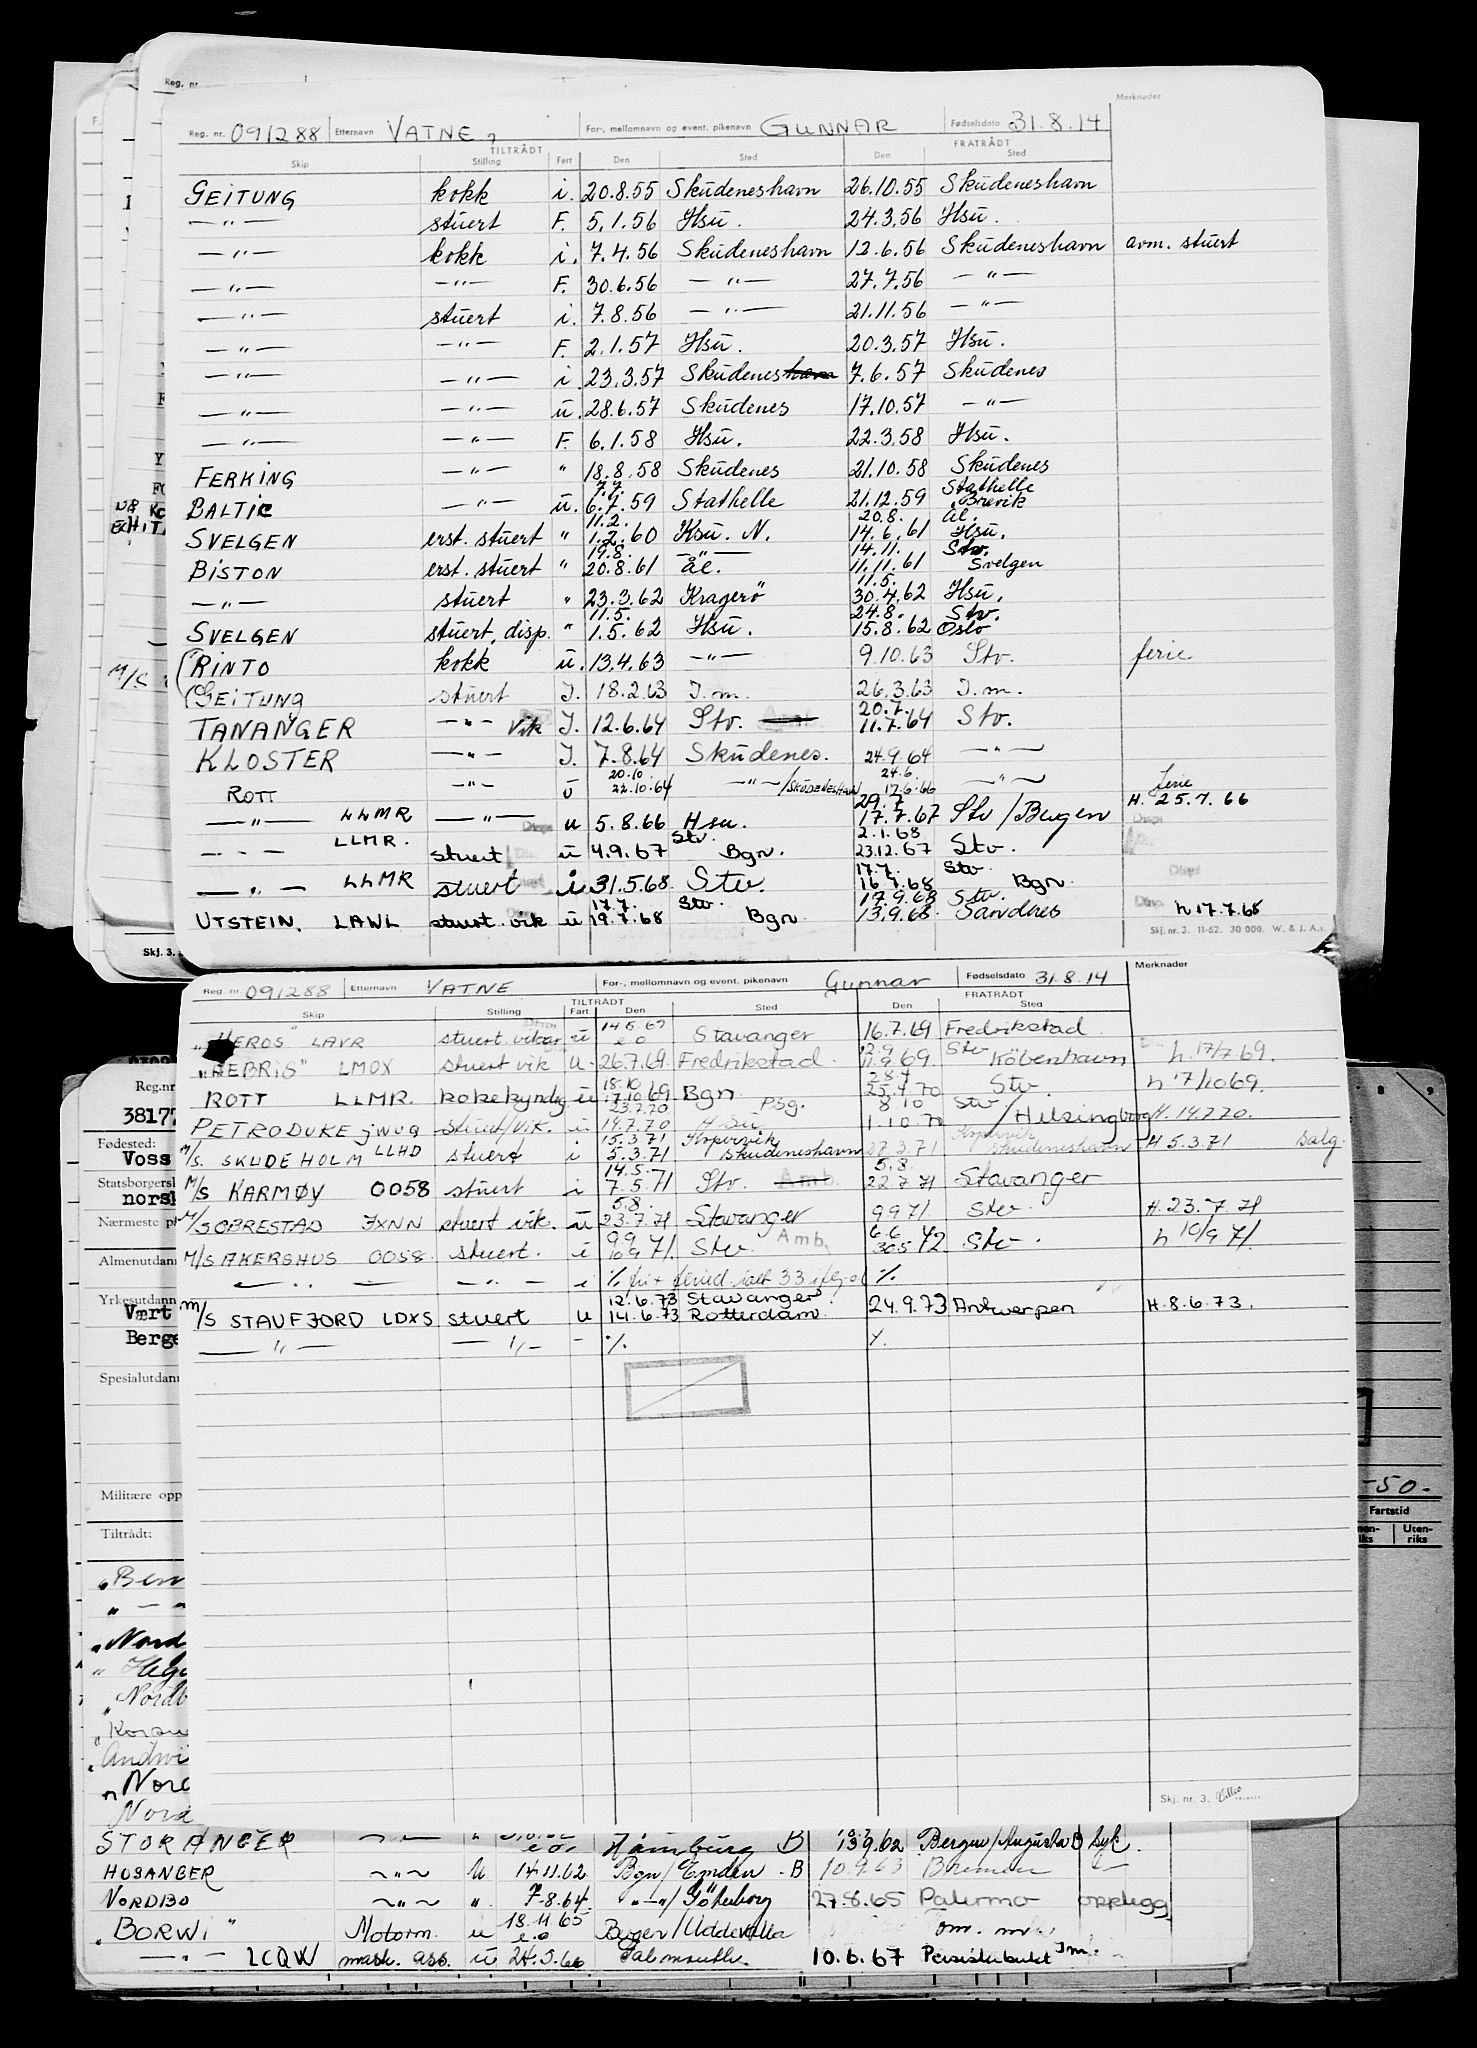 Merknader
Reg. nr. 091288 Etternavn VATNE, For-, mellomnavn og event. pikenavn GUNNAR Fødselsdato 31.8.14
TILTRÅDT FRATRÅDT
Skip Stilling Fart Den Sted Den Sted
GEITUNG kokk i. 20.8.55 Skudeneshavn 26.10.55 Skudeneshavn
—"— stuert F. 5.1.56 Hsu. 24.3.56 Hsu.
—"— kokk i. 7.4.56 Skudeneshavn 12.6.56 Skudeneshavn avm. stuert
—"— —"— F. 30.6.56 —"— 27.7.56 —"—
—"— stuert i. 7.8.56 —"— 21.11.56 —"—
—"— —"— F. 2.1.57 Hsu. 20.3.57 Hsu.
—"— —"— i. 23.3.57 Skudeneshavn 7.6.57 Skudenes
—"— —"— u. 28.6.57 Skudenes 17.10.57 —"—
—"— —"— F. 6.1.58 Hsu. 22.3.58 Hsu.
FERKING —"— " 18.8.58 Skudenes 21.10.58 Skudenes
7.7. Stathelle
BALTIC —"— u. 6.7.59 Stathelle 21.12.59 Brevik
11.2. 20.8. Ål.
SVELGEN erst. stuert " 1.2.60 Hsu. N. 14.6.61 Hsu.
19.8. —"— 14.11. Stv.
BISTON erst. stuert " 20.8.61 Ål. 11.11.61 Svelgen
11.5.
—"— stuert " 23.3.62 Kragerö 30.4.62 Hsu.
11.5. 24.8. Stv.
SVELGEN stuert, disp. " 1.5.62 Hsu. 15.8.62 Oslo
RINTO kokk u. 13.4.63 —"— 9.10.63 Stv. ferie
GEITUNG stuert J. 18.2.63 J.m. 26.3.63 J.m.
20.7.
TANANGER —"— vik J. 12.6.64 Stv. 11.7.64 Stv.
KLOSTER —"— J. 7.8.64 Skudenes. 24.9.64 —"—
20.10. 24.6. ferie
ROTT —"— u 22.10.64 —"—/SKUDENESHAVN 17.6.66 —"— H. 25.7.66
29.7
—"— LLMR —"— u 5.8.66 Hsu. 17.7.67 Stv/Bergen
Stv. 2.1.68
LLMR. stuert u 4.9.67 Bgn. 23.12.67 Stv.
17.7. Stv
—"— LLMR stuert i 31.5.68. Stv. 16.7.68 Bgn.
17.7. Stv 17.9.68 Stv.
UTSTEIN. LAWL stuert. vik u 19.7.68 Bgn 13.9.68. Sandnes h 17.7.68
Skj. 3. Skj. nr. 3. 11-62. 30 000. W. & J. A.s.
Merknader
Reg. nr. 091288 Etternavn VATNE For-, mellomnavn og event. pikenavn Gunnar Fødselsdato 31.8.14
TILTRÅDT FRATRÅDT
Skip Stilling Fart Den Sted Den Sted
HEROS LAVR stuert. vikar u 14 5. 69 e.o Stavanger 16.7.69 Fredrikstad
"HEBRIS" LMOX stuert vik u. 26.7.69. Fredrikstad. 12.9 11.9 69. Stv København h. 17/7 69.
ROTT LLMR. kokekyndig u 18.10 17.10 69 Bgn 28.4 25.4.70 Stv h 7/10 69.
PETRODUKE jwug stuert/vik. u 23.7.70 19.7.70 Psg. Hsu 8 10 1.10 70 Stv / Helsingborg H. 14.7.70.
M/S. SKUDEHOLM LLHD stuert i 15.3.71 5.3.71 Kopervik Skudeneshavn 27.3.71 Kopervik Skudeneshavn H 5.3.71 Salg.
M/S KARMØY 0058 stuert i 14.5. 7.5.71 Stv. Amb. 5.8. 22.7 71 Stavanger
M/S OBRESTAD JXNN stuert vik. u 5.8. 23.7.71 Stavanger 9 9 71 Stv. H. 23.7.71
M/S AKERSHUS 0058. stuert. i 9 9 10 9 71. Stv Amb. 6.6 30 5 72 Stv. h 10/9 71.
—"— —"— i %
M/S STAVFJORD LDXS stuert u 12.6.73 14.6.73 Stavanger Rotterdam 24.9.73 Antwerpen H. 8.6.73.
—"— —"— - % %
Skj. nr. 3.
Reg.nr
38177
Fødested:
Voss
Statsborgersk
norsk
Nærmeste p
Almenutdann
Yrkesutdann
Vært
Berge
Spesialutdann
Militære opp
-50-
Fartstid
Tiltrådt: Uten-riks
Nord
Nord
Nord
STORANGER Hamburg B 13.9.62 Bergen/Augusta syk.
HOSANGER —"— u 14.11.62 Bgn/Emden - B 10.9.63 Bremen
NORDBO —"— " 7-8.64. —"—/Göteborg 27.8.65 Palermo opplegg
"BORWI" Motorm. u 18.11 65 e.o Bergen/Uddevalla
—"— LCQW mask. ass. u 24.5.66 Falmouth. 10.6.67 J.m.